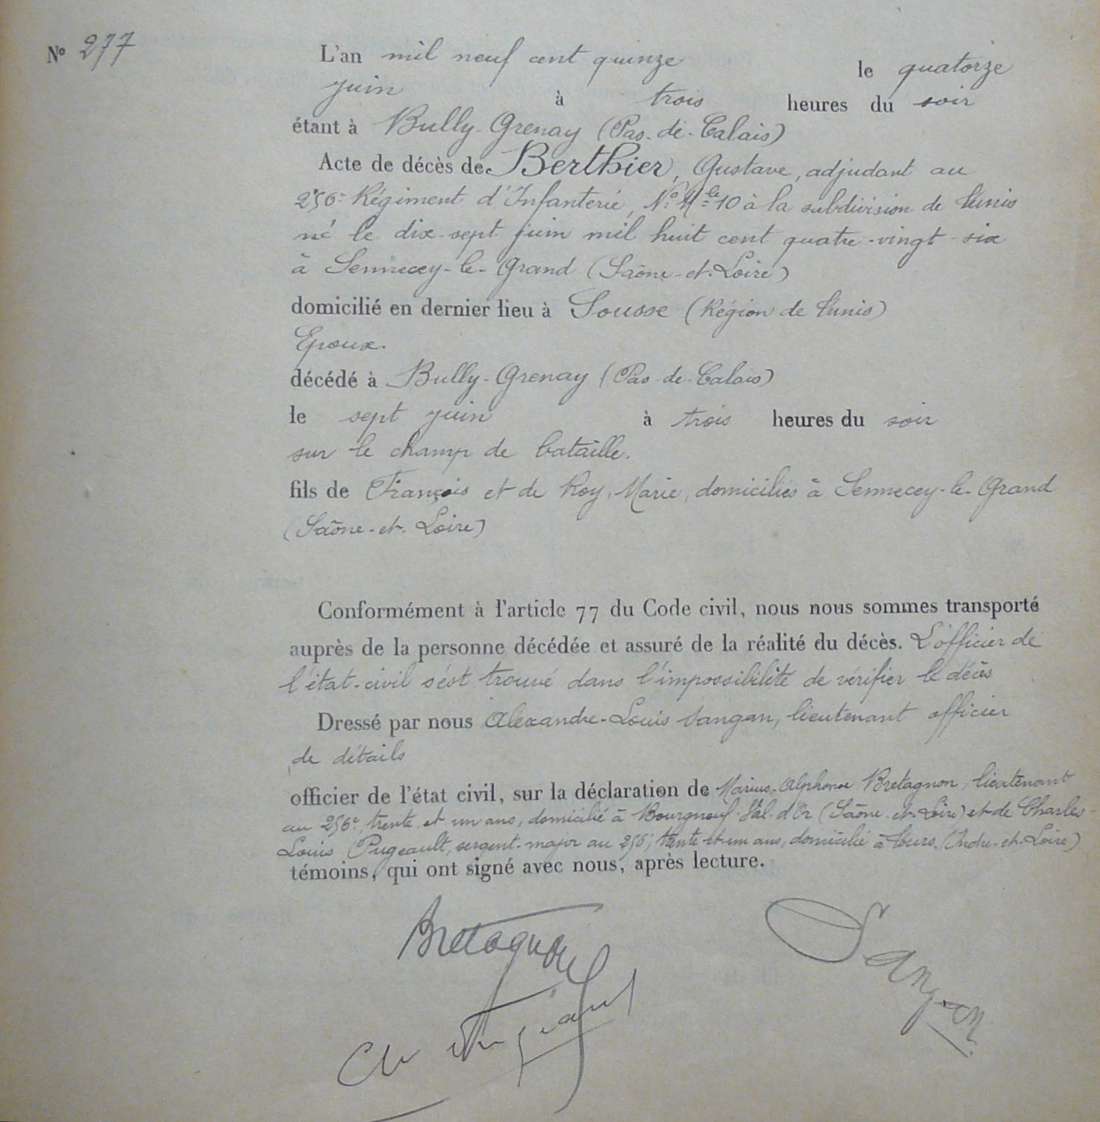 N° 277
L'an mil neuf cent quinze le quatorze
juin à trois heures du soir
étant à Bully-Grenay (Pas-de-Calais)
Acte de décès de Berthier, Gustave, adjudant au
256e Régiment d'Infanterie, N° Mle 10 à la subdivision de Tunis
né le dix-sept juin mil huit cent quatre-vingt-six
à Sennecey-le-Grand (Saône-et-Loire)
domicilié en dernier lieu à Sousse (Région de Tunis)
Epoux.
décédé à Bully-Grenay (Pas-de-Calais)
le sept juin à trois heures du soir
sur le champ de bataille.
fils de François et de Roy, Marie, domiciliés à Sennecey-le-Grand
(Saône-et-Loire)
Conformément à l'article 77 du Code civil, nous nous sommes transporté
auprès de la personne décédée et assuré de la réalité du décès. L'officier de
l'état-civil s'est trouvé dans l'impossibilité de vérifier le décès
Dressé par nous Alexandre-Louis Sangan, lieutenant officier
de détails
officier de l'état civil, sur la déclaration de Marius-Alphonse Bretagnon, lieutenant
au 256e, trente et un ans, domicilié à Bourgneuf-Val d'Or (Saône-et-Loire) et de Charles-
Louis Pugeault, sergent-major au 256, trente et un ans, domicilié à Tours (Indre-et-Loire)
témoins, qui ont signé avec nous, après lecture.
Bretagnon
Sangan